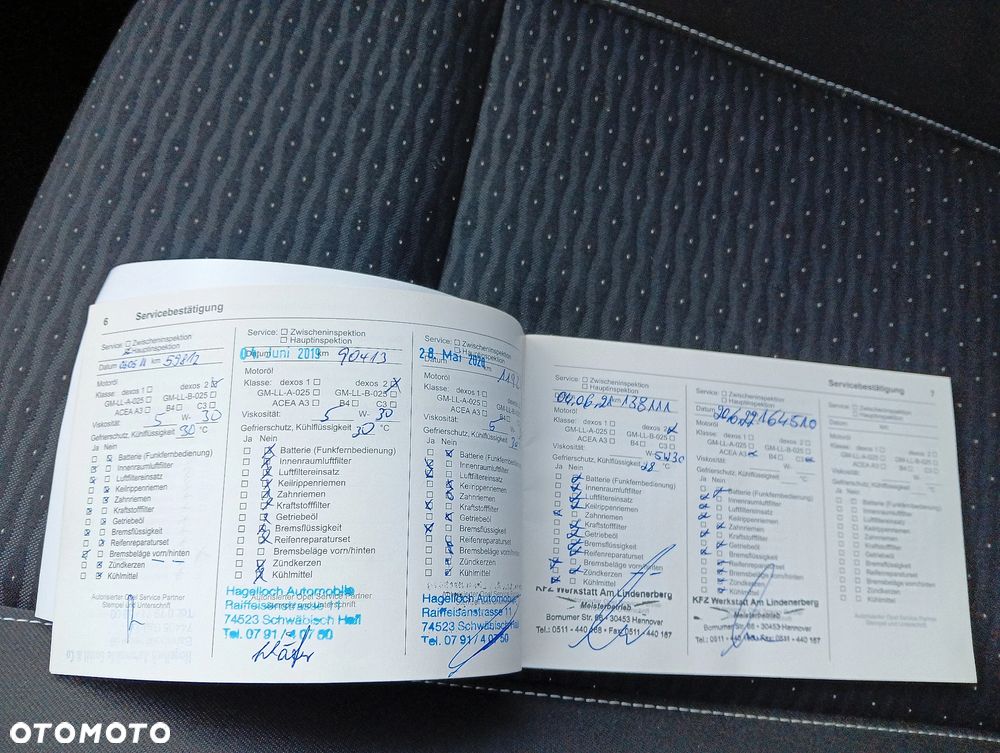 6 Servicebestätigung
Hauptinspektion
Datum km 59812
Motoröl
Klasse: dexos 1 dexos 2
GM-LL-A-025 GM-LL-B-025
ACEA A3 B4 C3
Viskosität: 5 W- 30
Gefrierschutz, Kühlflüssigkeit 30 °C
Ja Nein
Batterie (Funkfernbedienung)
Innenraumluftfilter
Luftfiltereinsatz
Keilrippenriemen
Zahnriemen
Kraftstofffilter
Getriebeöl
Bremsflüssigkeit
Reifenreparaturset
Bremsbeläge vorn/hinten
Zündkerzen
Kühlmittel
Autorisierter Opel Service Partner
Stempel und Unterschrift
Service: Zwischeninspektion
Hauptinspektion
Juni 2019 km 90413
Motoröl
Klasse: dexos 1 dexos 2
GM-LL-A-025 GM-LL-B-025
ACEA A3 B4 C3
Viskosität: 5 W- 30
Gefrierschutz, Kühlflüssigkeit 30 °C
Ja Nein
Batterie (Funkfernbedienung)
Innenraumluftfilter
Luftfiltereinsatz
Keilrippenriemen
Zahnriemen
Kraftstofffilter
Getriebeöl
Bremsflüssigkeit
Reifenreparaturset
Bremsbeläge vorn/hinten
Zündkerzen
Kühlmittel
Hagelloch Automobile
Autorisierter Opel Service Partner
Raiffeisenstrasse
74523 Schwäbisch Hall
Tel. 07 91 /
Service: Zwischeninspektion
Hauptinspektion
28. Mai 2020
Motoröl
Klasse: dexos 1
GM-LL-A-025
ACEA A3
Viskosität: 5
Gefrierschutz, Kühlflüssigkeit
Ja Nein
Batterie (Funkfernbedienung)
Innenraumluftfilter
Luftfiltereinsatz
Keilrippenriemen
Zahnriemen
Kraftstofffilter
Getriebeöl
Bremsflüssigkeit
Reifenreparaturset
Bremsbeläge vorn/hinten
Zündkerzen
Kühlmittel
Hagelloch Automobile
Raiffeisenstrasse 11
74523 Schwäbisch Hall
Tel. 07 91 /
Service: Zwischeninspektion
Hauptinspektion
04.06.21 138111
Motoröl
Klasse: dexos 1 dexos 2
GM-LL-A-025 GM-LL-B-025
ACEA A3 B4 C3
Viskosität: 5W30
Gefrierschutz, Kühlflüssigkeit °C
Ja Nein
Batterie (Funkfernbedienung)
Innenraumluftfilter
Luftfiltereinsatz
Keilrippenriemen
Zahnriemen
Kraftstofffilter
Getriebeöl
Bremsflüssigkeit
Reifenreparaturset
Bremsbeläge vorn/hinten
Zündkerzen
Kühlmittel
KFZ Werkstatt Am Lindenerberg
Meisterbetrieb
Bornumer Str. - 30453 Hannover
Tel.: 0511 - 440 - Fax: 0511 - 440 167
Servicebestätigung 7
Service: Zwischeninspektion
Hauptinspektion
Datum 164510
Motoröl
Klasse: dexos 1 dexos 2
GM-LL-A-025 GM-LL-B-025
ACEA A3 B4 C3
Viskosität: W-
Gefrierschutz, Kühlflüssigkeit °C
Ja Nein
Batterie (Funkfernbedienung)
Innenraumluftfilter
Luftfiltereinsatz
Keilrippenriemen
Zahnriemen
Kraftstofffilter
Getriebeöl
Bremsflüssigkeit
Reifenreparaturset
Bremsbeläge vorn/hinten
Zündkerzen
Kühlmittel
KFZ Werkstatt Am Lindenerberg
Meisterbetrieb
Bornumer Str. - 30453 Hannover
Tel.: 0511 - 440 167
Service: Zwischeninspektion
Hauptinspektion
Datum km
Motoröl
Klasse: dexos 1 dexos 2
GM-LL-A-025 GM-LL-B-025
ACEA A3 B4 C3
Viskosität: W-
Gefrierschutz, Kühlflüssigkeit °C
Ja Nein
Batterie (Funkfernbedienung)
Innenraumluftfilter
Luftfiltereinsatz
Keilrippenriemen
Zahnriemen
Kraftstofffilter
Getriebeöl
Bremsflüssigkeit
Reifenreparaturset
Bremsbeläge vorn/hinten
Zündkerzen
Kühlmittel
Autorisierter Opel Service Partner
Stempel und Unterschrift
OTOMOTO